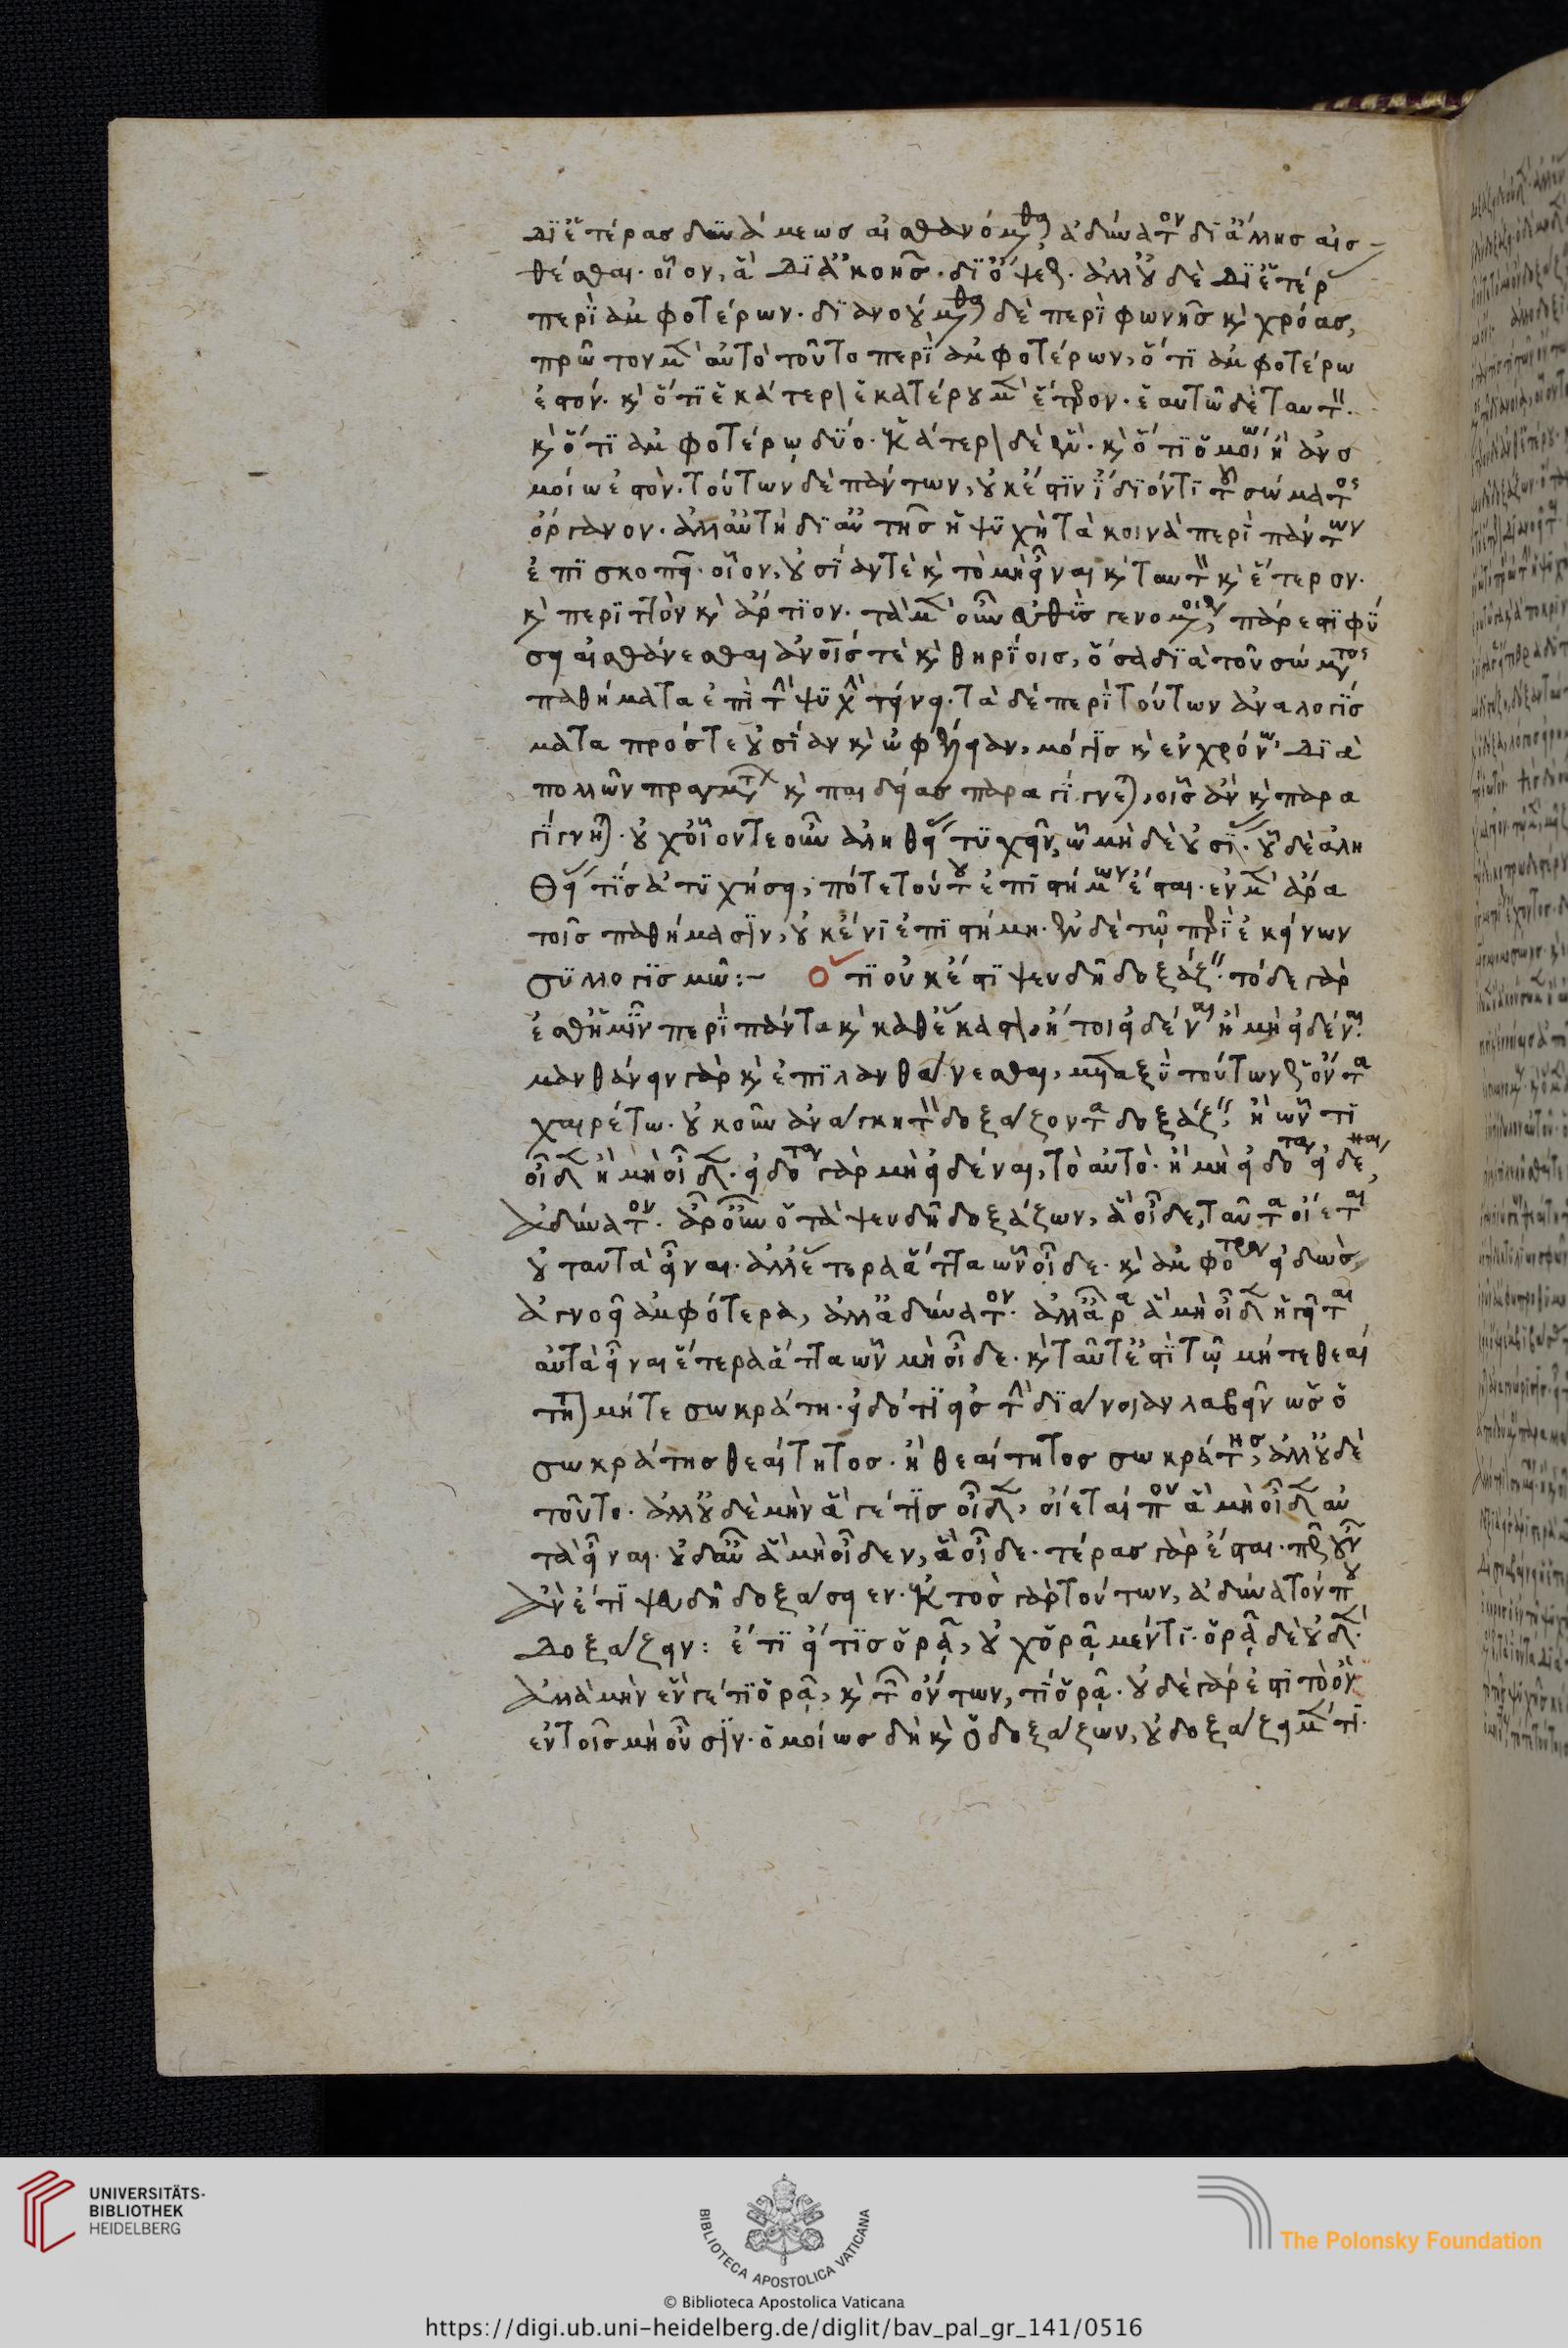 δι' ἑτέρας δυνάμεως αἰσθανόμεθα, ἀδύνατον δι' ἄλλης αἰσ-
θέσθαι. οἷον, ἃ δι' ἀκοῆς. δι' ὄψεως. ἀλλ' οὐδὲ δι' ἑτέρου
περὶ ἀμφοτέρων. διανοούμεθα δὲ περὶ φωνῆς καὶ χρόας,
πρῶτον μὲν αὐτὸ τοῦτο περὶ ἀμφοτέρων, ὅτι ἀμφοτέρω
ἐστόν. καὶ ὅτι ἑκάτερον ἑκατέρου μὲν ἕτερον. ἑαυτῶ δὲ ταυτόν.
καὶ ὅτι ἀμφοτέρω δύο. ἑκάτερον δὲ ἕν. καὶ ὅτι ὁμοίω ἢ ἀνο
μοίω ἐστόν. τούτων δὲ πάντων, οὐκ ἔστιν ἴδιόν τι τοῦ σώματος
ὄργανον. ἀλλ' αὐτὴ δι' αὑτῆς ἡ ψυχὴ τὰ κοινὰ περὶ πάντων
ἐπισκοπεῖ. οἷον, οὐσίαν τὲ καὶ τὸ μὴ εἶναι καὶ ταυτὸν καὶ ἕτερον.
καὶ περιττὸν καὶ ἄρτιον. τὰ μὲν οὖν εὐθὺς γενομένοις, πάρεστι φύ
σει αἰσθάνεσθαι ἀνοις τὲ καὶ θηρίοις, ὅσα διὰ τοῦ σώματος
παθήματα ἐπὶ τὴν ψυχὴν τείνει. τὰ δὲ περὶ τούτων ἀναλογίσ
ματα πρός τε οὐσίαν καὶ ὠφέλειαν, μόγις καὶ ἐν χρόνω. διὰ
πολλῶν πραγμάτων καὶ παιδείας παραγίγνεται, οἷς ἂν καὶ παρα
γίγνηται. οὐχ οἷόν τε οὖν ἀληθείας τυχεῖν, ὧ μὴ δὲ οὐσίας. οὗ δὲ ἀλη
θείας τὶς ἀτυχήσει, πότε τούτου ἐπιστήμων ἔσται. ἐν μὲν ἄρα
τοῖς παθήμασιν, οὐκ ἔνι ἐπιστήμη. ἐν δὲ τῶ περὶ ἐκείνων
συλλογισμῶ:- Ὅτι οὐκ ἔστι ψευδῆ δοξάζειν. τόδε γὰρ
ἔσθ' ἡμῖν περὶ πάντα καὶ καθ' ἕκαστον, ἤτοι εἰδέναι ἢ μὴ εἰδέναι.
μανθάνειν γὰρ καὶ ἐπιλανθάνεσθαι, μεταξὺ τούτων ὄντα
χαιρέτω. οὐκοῦν ἀνάγκη τὸν δοξάζοντα δοξάζειν, ἢ ὧν τι
οἶδεν ἢ μὴ οἶδεν. εἰδότα γὰρ μὴ εἰδέναι, τὸ αὐτὸ. ἢ μὴ εἰδότα εἰδέναι,
ἀδύνατον. ἆρ' οὖν ὁ τὰ ψευδῆ δοξάζων, ἃ οἶδε, ταῦτα οἴεται
οὐ ταῦτα εἶναι. ἀλλ' ἕτερα ἄττα ὧν οἶδε. καὶ ἀμφότερα εἰδὼς,
ἀγνοεῖ ἀμφότερα, ἀλλ' ἀδύνατον. ἀλλ' ἆρα ἃ μὴ οἶδεν ἡγεῖται
αὐτὰ εἶναι ἕτερα ἄττα ὧν μὴ οἶδε. καὶ τοῦτ' ἔστι τῶ μήτε θεαί
τητον μήτε σωκράτη. εἰδότι εἰς τὴν διάνοιαν λαβεῖν ὡς ὁ
σωκράτης θεαίτητος. ἢ θεαίτητος σωκράτης, ἀλλ' οὐδὲ
τοῦτο. ἀλλ' οὐδὲ μὴν ἅ γέ τις οἶδεν, οἴεταί που ἃ μὴ οἶδεν αὐ
τὰ εἶναι. οὐδ' αὖ ἃ μὴ οἶδεν, ἃ οἶδε. τέρας γὰρ ἔσται. πῶς οὖν
ἂν ἔτι ψευδῆ δοξάσειεν. ἐκτὸς γὰρ τούτων, ἀδύνατόν που
δοξάζειν: ἔτι εἴ τις ὁρᾶ, οὐχ ὁρᾶ μέν τι. ὁρᾶ δὲ οὐδέν.
ἀλλὰ μὴν ἕν γέ τι ὁρᾶ, καὶ τῶν ὄντων, τί ὁρᾶ. οὐδὲ γάρ ἐστι τὸ ὃν
ἐν τοῖς μὴ οὖσιν. ὁμοίως δὴ καὶ ὁ δοξάζων, οὐ δοξάζει μέν τι.
UNIVERSITÄTS-
BIBLIOTHEK
HEIDELBERG
BIBLIOTECA APOSTOLICA VATICANA
The Polonsky Foundation
© Biblioteca Apostolica Vaticana
https://digi.ub.uni-heidelberg.de/diglit/bav_pal_gr_141/0516